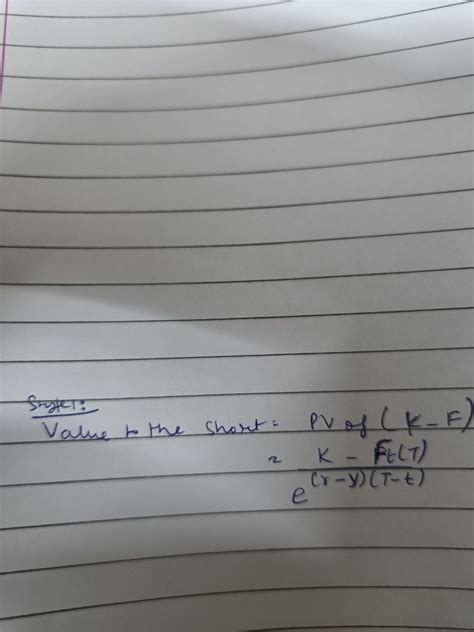 Value to the Short = PV of (K - F)
= K - Ft(T)
e (r-y)(T-t)